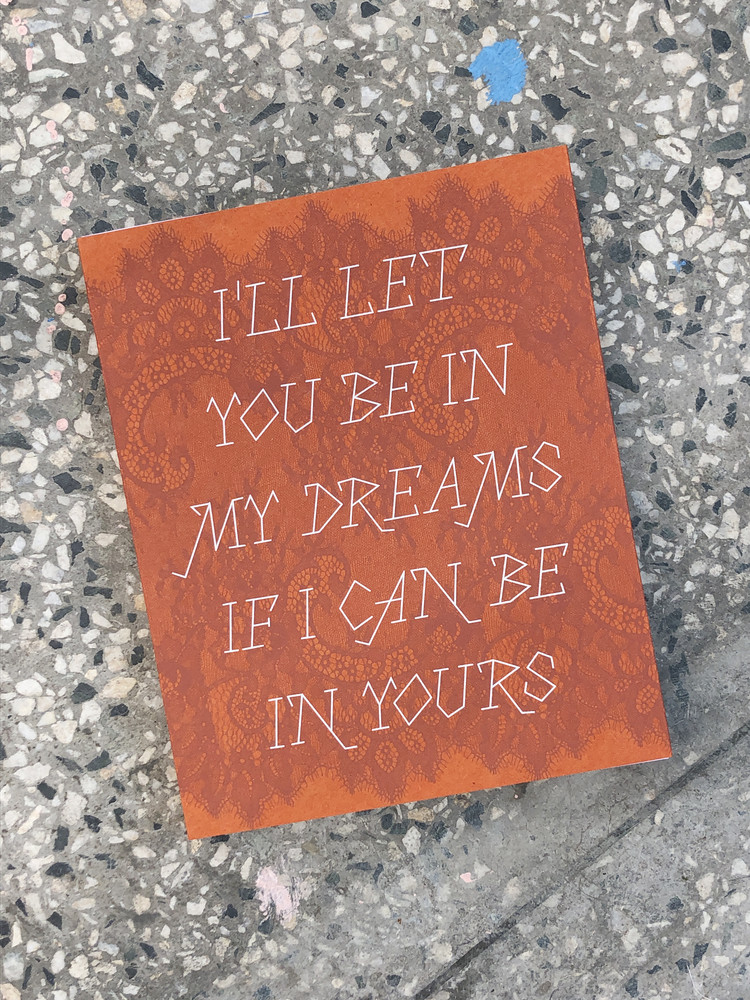 I'LL LET
YOU BE IN
MY DREAMS
IF I CAN BE
IN YOURS